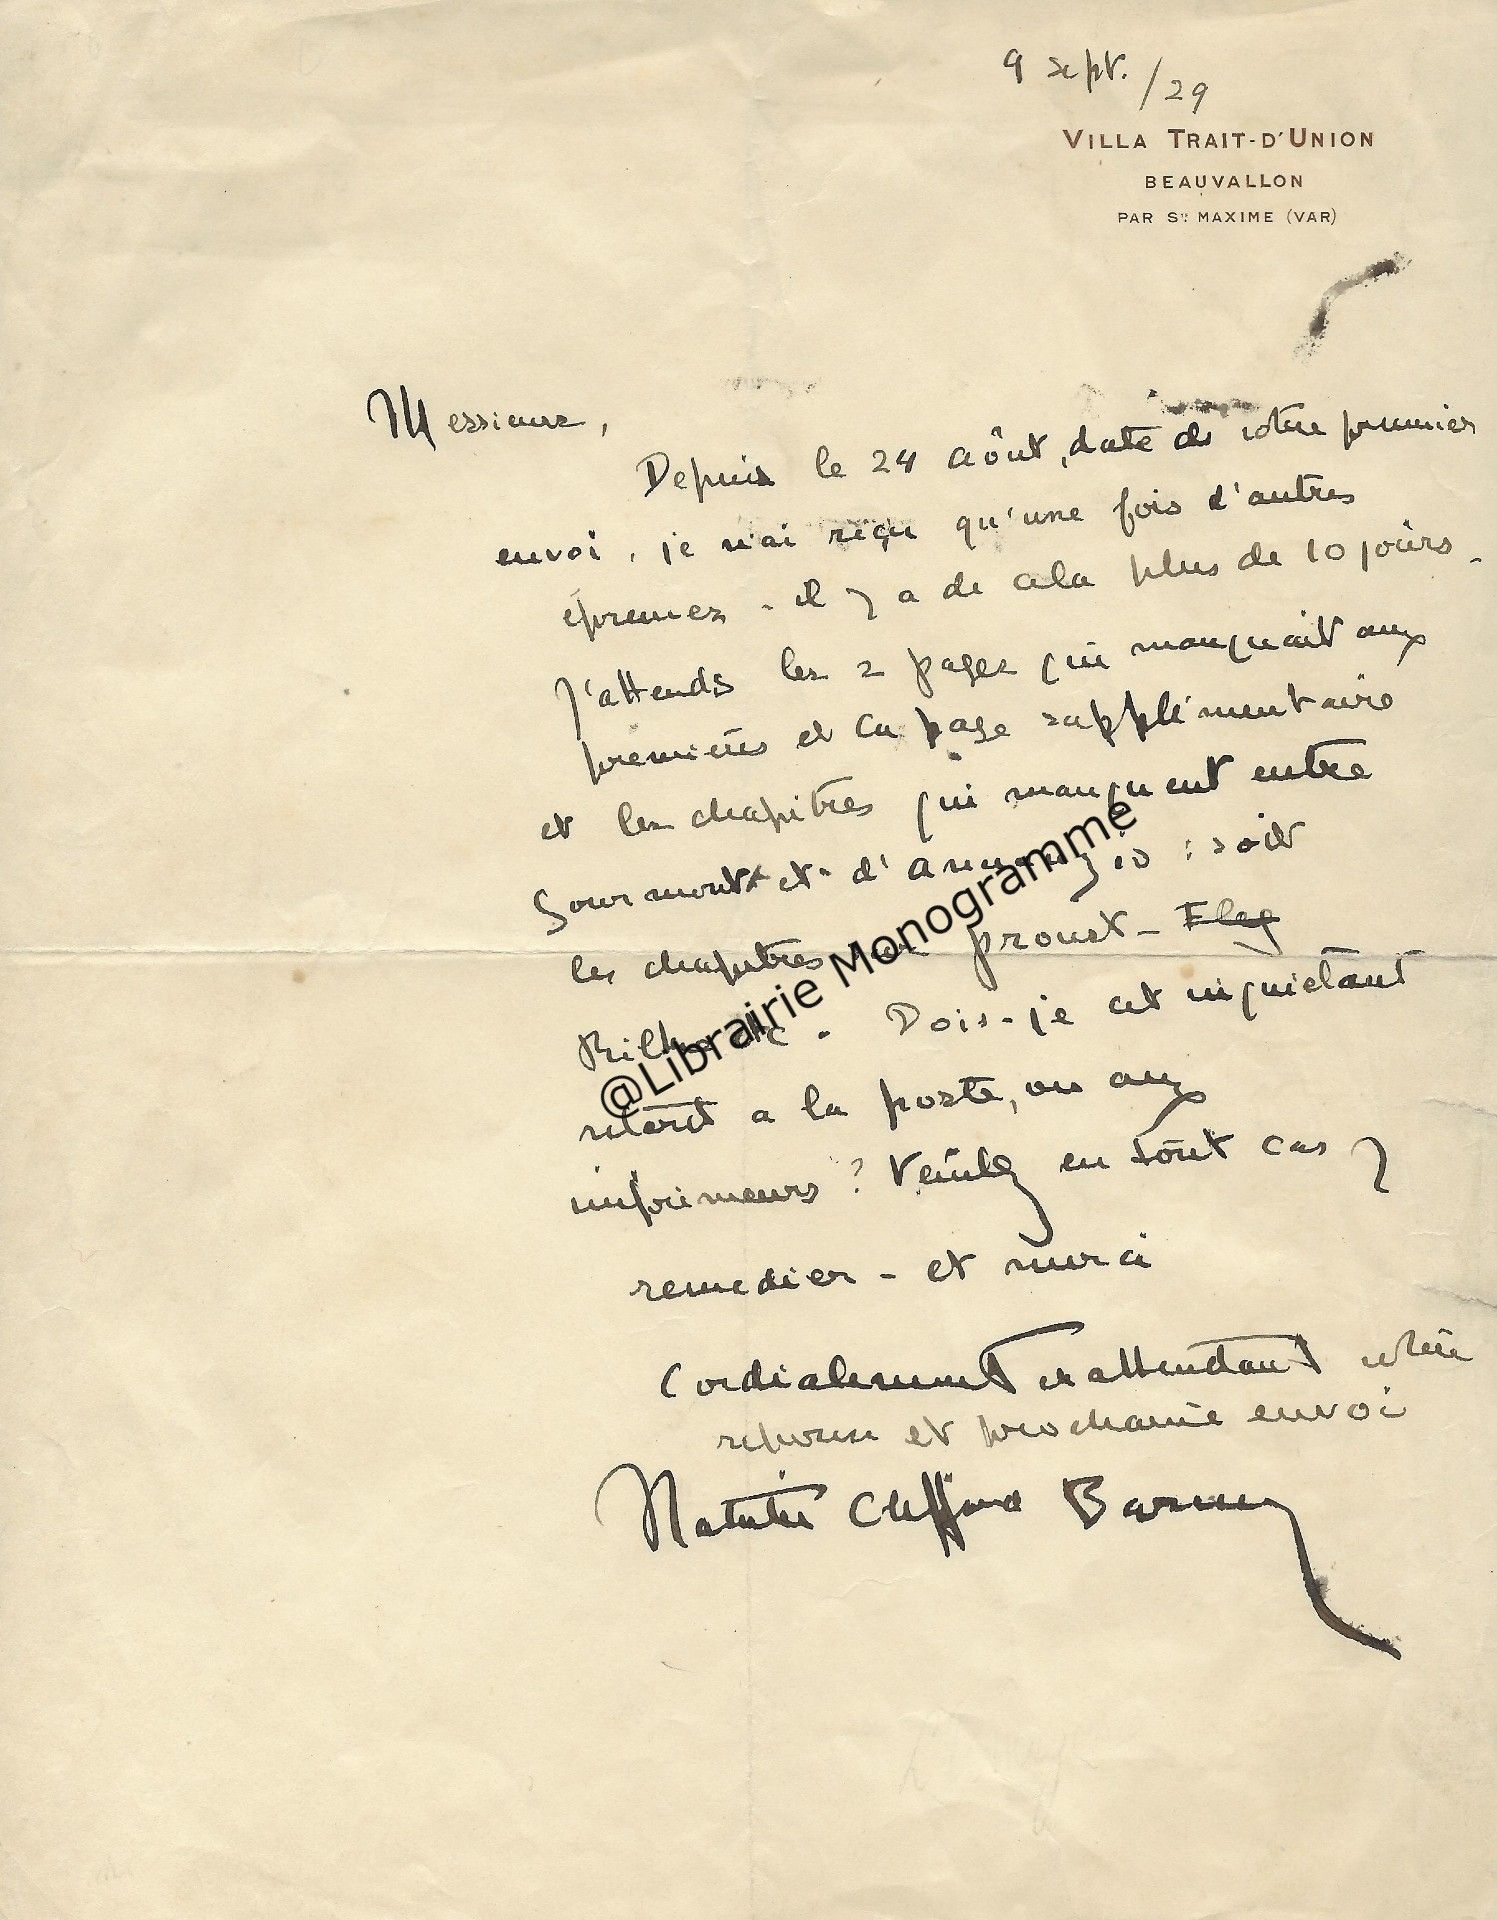 9 sept. /29
VILLA TRAIT-D'UNION
BEAUVALLON
PAR STE MAXIME (VAR)
Messieurs,
Depuis le 24 août, date de votre premier
envoi, je n'ai reçu qu'une fois d'autres
épreuves - il y a de cela plus de 10 jours -
J'attends les 2 pages qui manquait aux
premières et la page supplémentaire
et les chapitres qui manquent entre
Gourmont et d'Annunzio : soit
les chapitres sur Proust - Fleg
Rilke etc - Dois-je cet inquiétant
retard a la poste, ou aux
imprimeurs ? Veuillez en tout cas y
remedier - et merci
Cordialement en attendant votre
reponse et prochaine envoi
Natalie Clifford Barney
@Librairie Monogramme